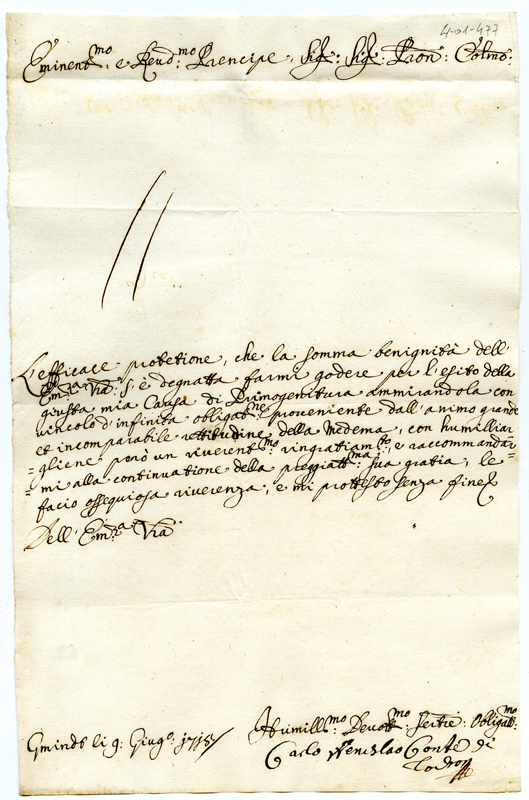 4-01-477
Eminent.mo e Reud.mo Prencipe, Sig.r Sig.r Pron: Colmo:
L'efficace protetione, che la somma benignità dell'
Em.za V.ra S'è degnatta farmi godere per l'esito della
giusta mia Causa di Primogenitura ammirandola con
vincolo d'infinita obligat.ne proveniente dall'animo grande
et incomparabile rettitudine della Medema, con humilliar
=gliene però un riverent.mo ringratiam.to, e raccommandar
=mi alla continuatione della preggiatt.ma sua gratia, le
facio ossequiosa riverenza, e mi prottesto senza fine
Dell' Em.za V.ra
Gmindt li 9: Giug.o 1718
Humill.mo Deuot.mo Serure: Obligatt.mo
Carlo Venceslao Conte di
Lodron